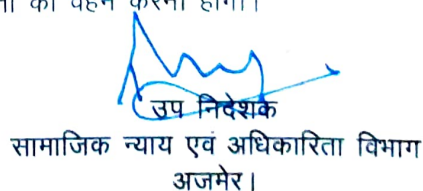 को वहन करना होगा।
उप निदेशक
सामाजिक न्याय एवं अधिकारिता विभाग
अजमेर।